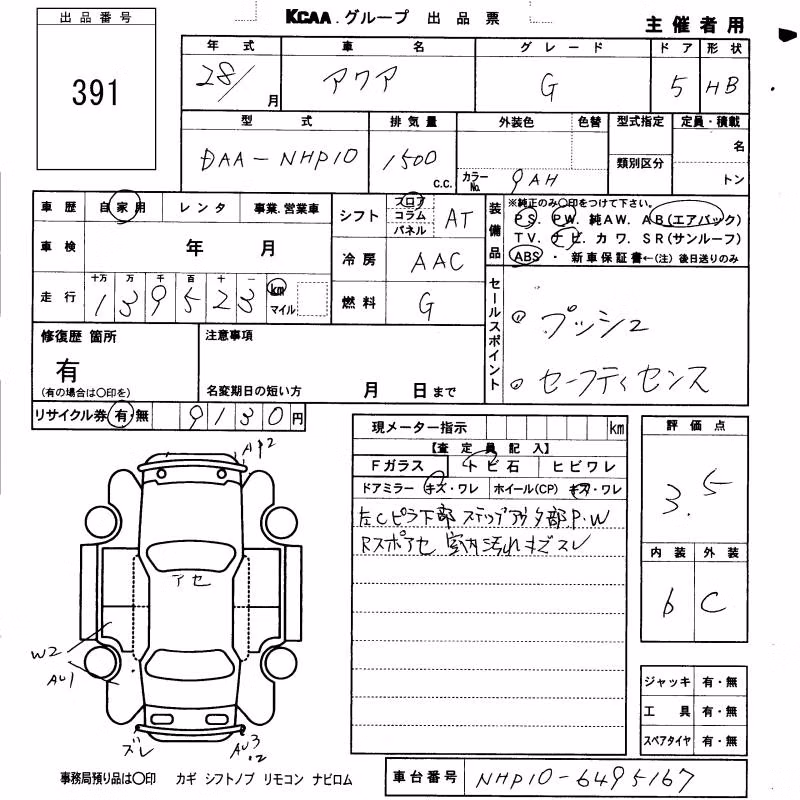 出品番号
391
KCAA.グループ 出品票
主催者用
年式 車名 グレード ドア 形状
28/ 月 アクア G 5 HB
型式 排気量 外装色 色替 型式指定 定員・積載
DAA-NHP10 1500 C.C. カラーNo. 9AH 類別区分 名 トン
車歴 自家用 レンタ 事業.営業車
車検 年 月
走行 十万 万 千 百 十 一
139523 km マイル
シフト フロア コラム パネル AT
冷房 AAC
燃料 G
装備品 ※純正のみ○印をつけて下さい。
PS. PW. 純AW. AB(エアバック)
TV. ナビ. カワ. SR(サンルーフ)
ABS ・ 新車保証書←(注) 後日送りのみ
セールスポイント
◎ プッシュ
◎ セーフティセンス
修復歴 箇所
有
(有の場合は○印を)
注意事項
名変期日の短い方 月 日まで
リサイクル券 有・無 9130円
現メーター指示 km
【査定員記入】
Fガラス トビ石 ヒビワレ
ドアミラー キズ・ワレ ホイール(CP) キズ・ワレ
左Cピラ下部 ステップアウタ部P.W
Rスポアセ 室内汚れキズスレ
評価点
3.5
内装 外装
6 C
ジャッキ 有・無
工具 有・無
スペアタイヤ 有・無
A12
アセ
W2
AU1
ズレ
AU3
.2
事務局預り品は○印 カギ シフトノブ リモコン ナビロム
車台番号 NHP10-6495167